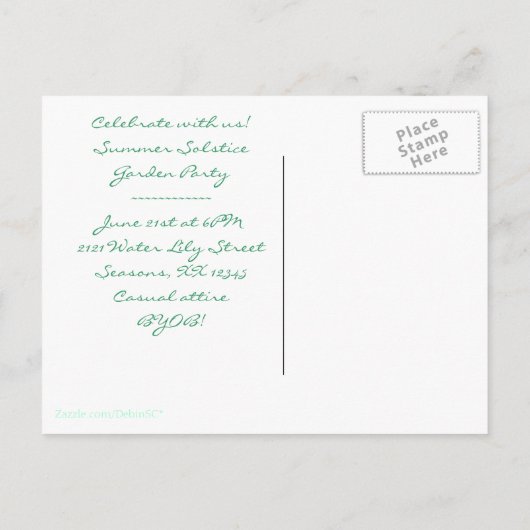 Celebrate with us!
Summer Solstice
Garden Party
~~~~~~~~~~~~
June 21st at 6PM
2121 Water Lily Street
Seasons, XX 12345
Casual attire
BYOB!
Place
Stamp
Here
Zazzle.com/DebinSC*